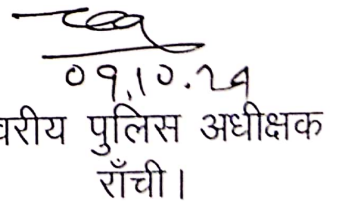 09.10.24
वरीय पुलिस अधीक्षक
राँची।